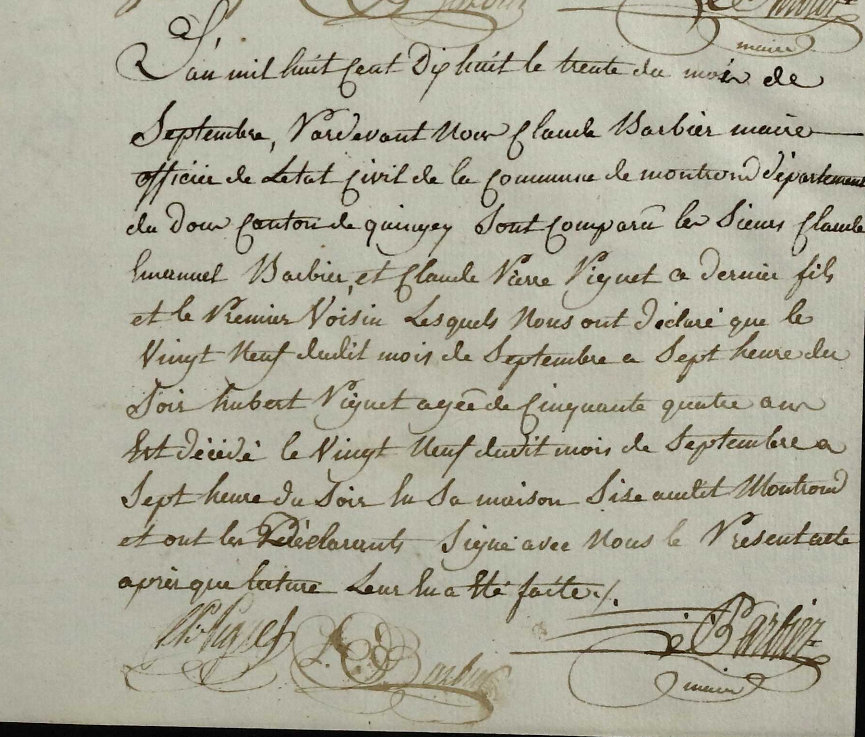 Barbier
maire
L'an mil huit Cent Dix huit le trente du mois de
Septembre, Pardevant Nous Claude Barbier maire
officier de Letat Civil de la Commune de montrond département
du Doux Canton de quingey Sont Comparû les Sieurs Claude
Emanuel Barbier, et Claude Pierre Viguet ce dernier fils
et le Premier Voisin Lesquels Nous ont déclaré que le
Vingt Neuf dudit mois de Septembre a Sept heure du
Soir hubert Viguet agée de Cinquante quatre ans
Est décédé le Vingt Neuf dudit mois de Septembre a
Sept heure du Soir En Sa maison Sise audit Montrond
et ont les Déclarants Signé avec Nous le Présent acte
après que lecture Leur En a Eté faite ./.
Viguet Barbier Barbier
maire